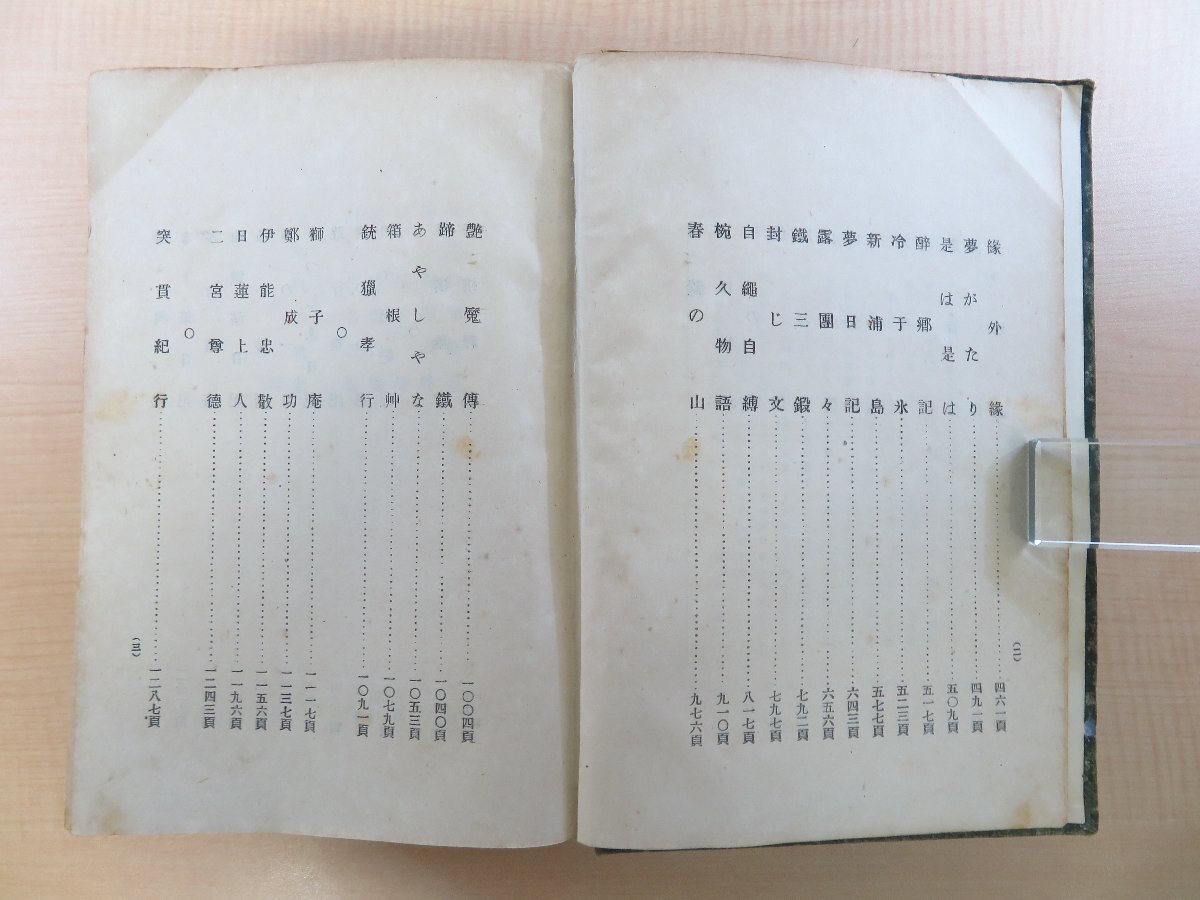 (二)
緣外緣……四六一頁
夢がたり……四九一頁
是は是は……五〇九頁
醉鄉記……五一七頁
冷于氷……五二三頁
新浦島……五七七頁
夢日記……六四三頁
露團々……六五六頁
鐵三鍛……七九二頁
封じ文……七九七頁
自繩自縛……八一七頁
椀久物語……九一〇頁
春の山……九七六頁
艷魔傳……一〇〇四頁
蹄鐵……一〇四〇頁
あやしやな……一〇五三頁
箱根艸……一〇七九頁
銃獵孝行……一〇九一頁
〇
獅子庵……一一一七頁
鄭成功……一一三七頁
伊能忠敬……一一五六頁
日蓮上人……一一九六頁
二宮尊德……一二四三頁
〇
突貫紀行……一二八七頁
(三)